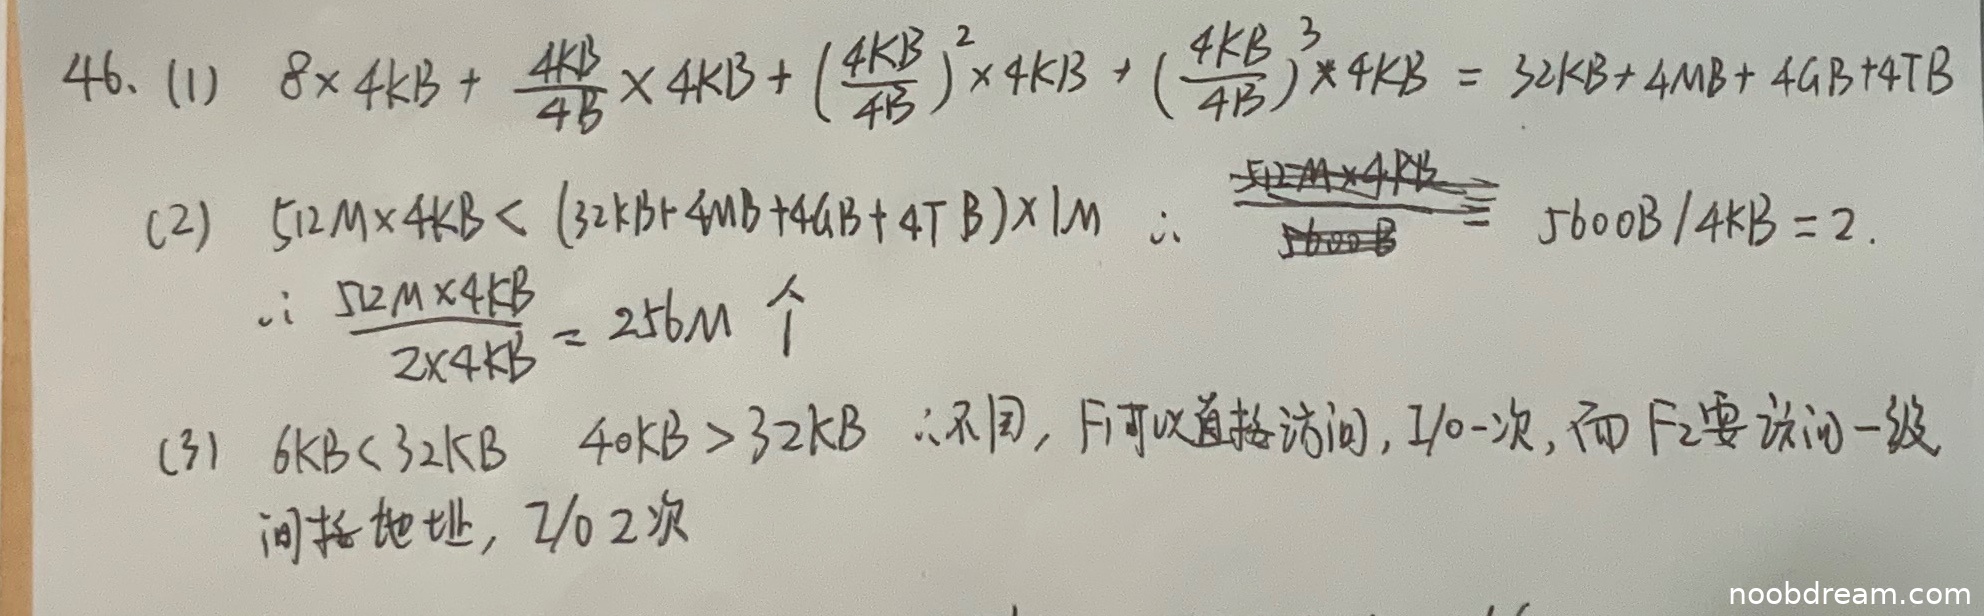 46. (1) 8×4KB + 4KB/4B ×4KB + (4KB/4B)²×4KB + (4KB/4B)³×4KB = 32KB+4MB+4GB+4TB
(2) 512M×4KB < (32KB+4MB+4GB+4TB)×1M ∴ 5600B/4KB=2.
∴ 512M×4KB/2×4KB = 256M 个
(3) 6KB<32KB 40KB>32KB ∴不同, F1可以直接访问, I/O一次, 而F2要访问一级
间接地址, I/O 2次
noobdream.com